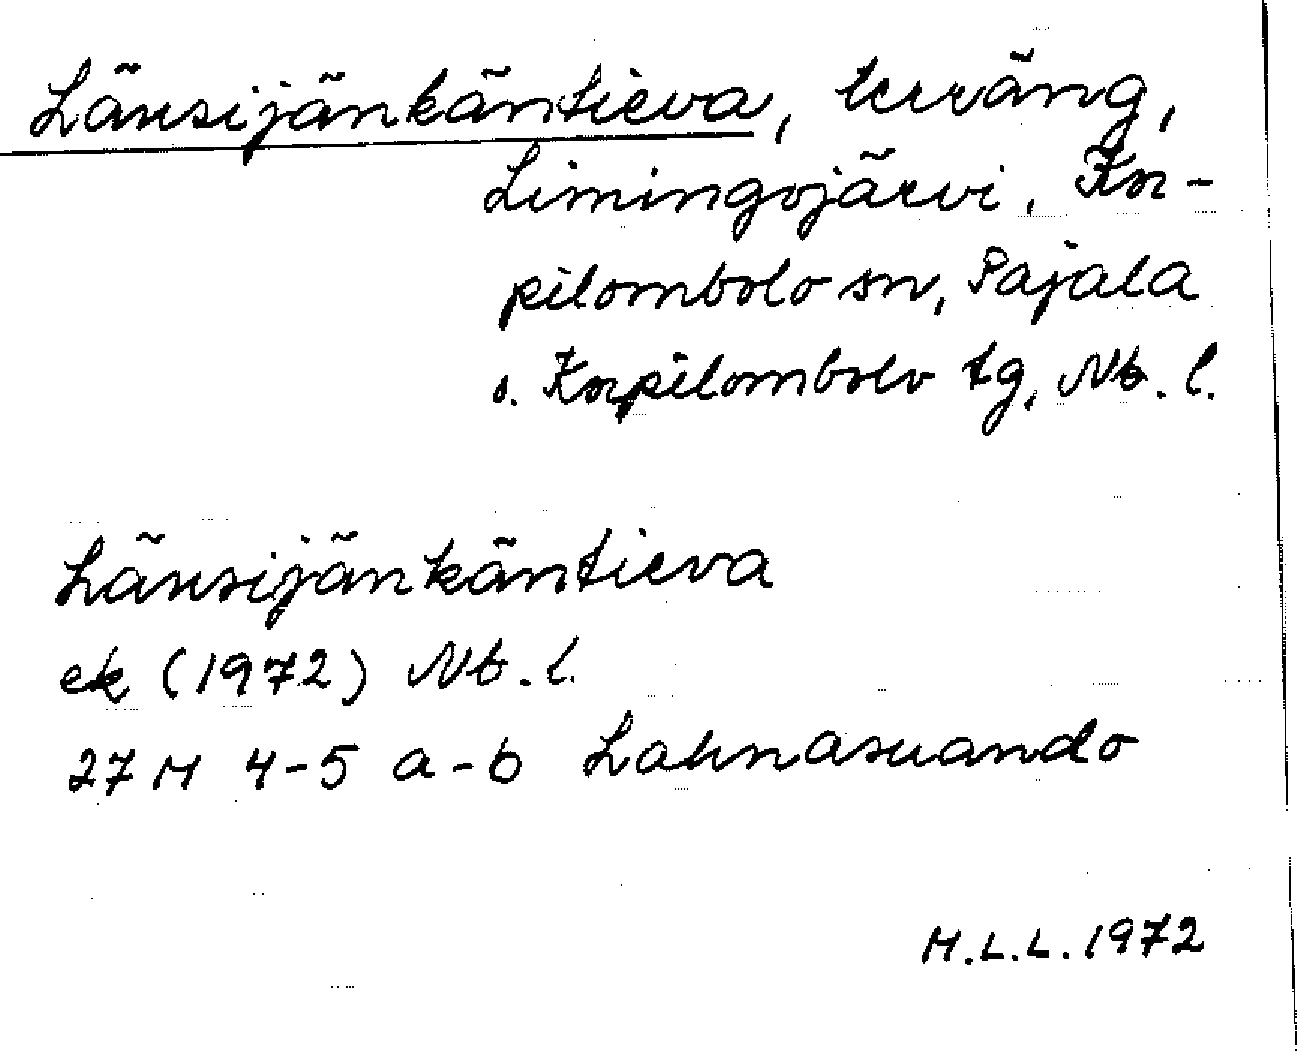 Länsijänkäntieva, terräng,
Limingojärvi, Kor-
pilombolo sn, Pajala
o. Korpilombolo tg, Nb. l.
Länsijänkäntieva
ek (1972) Nb. l.
27 M 4-5 a-b Lahnasuando
H.L.L. 1972